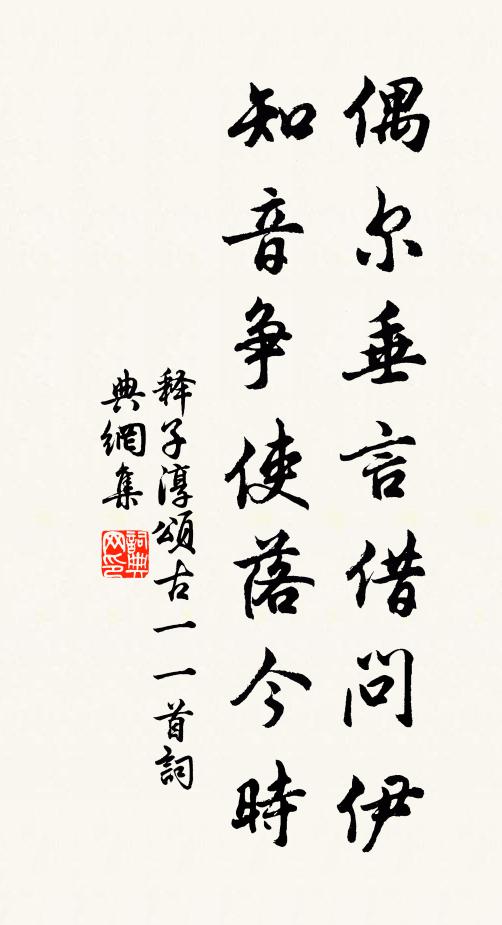 偶尔垂言借问伊
知音争使落今時
释子淳頌古一一首詞
典網集
詞典网印